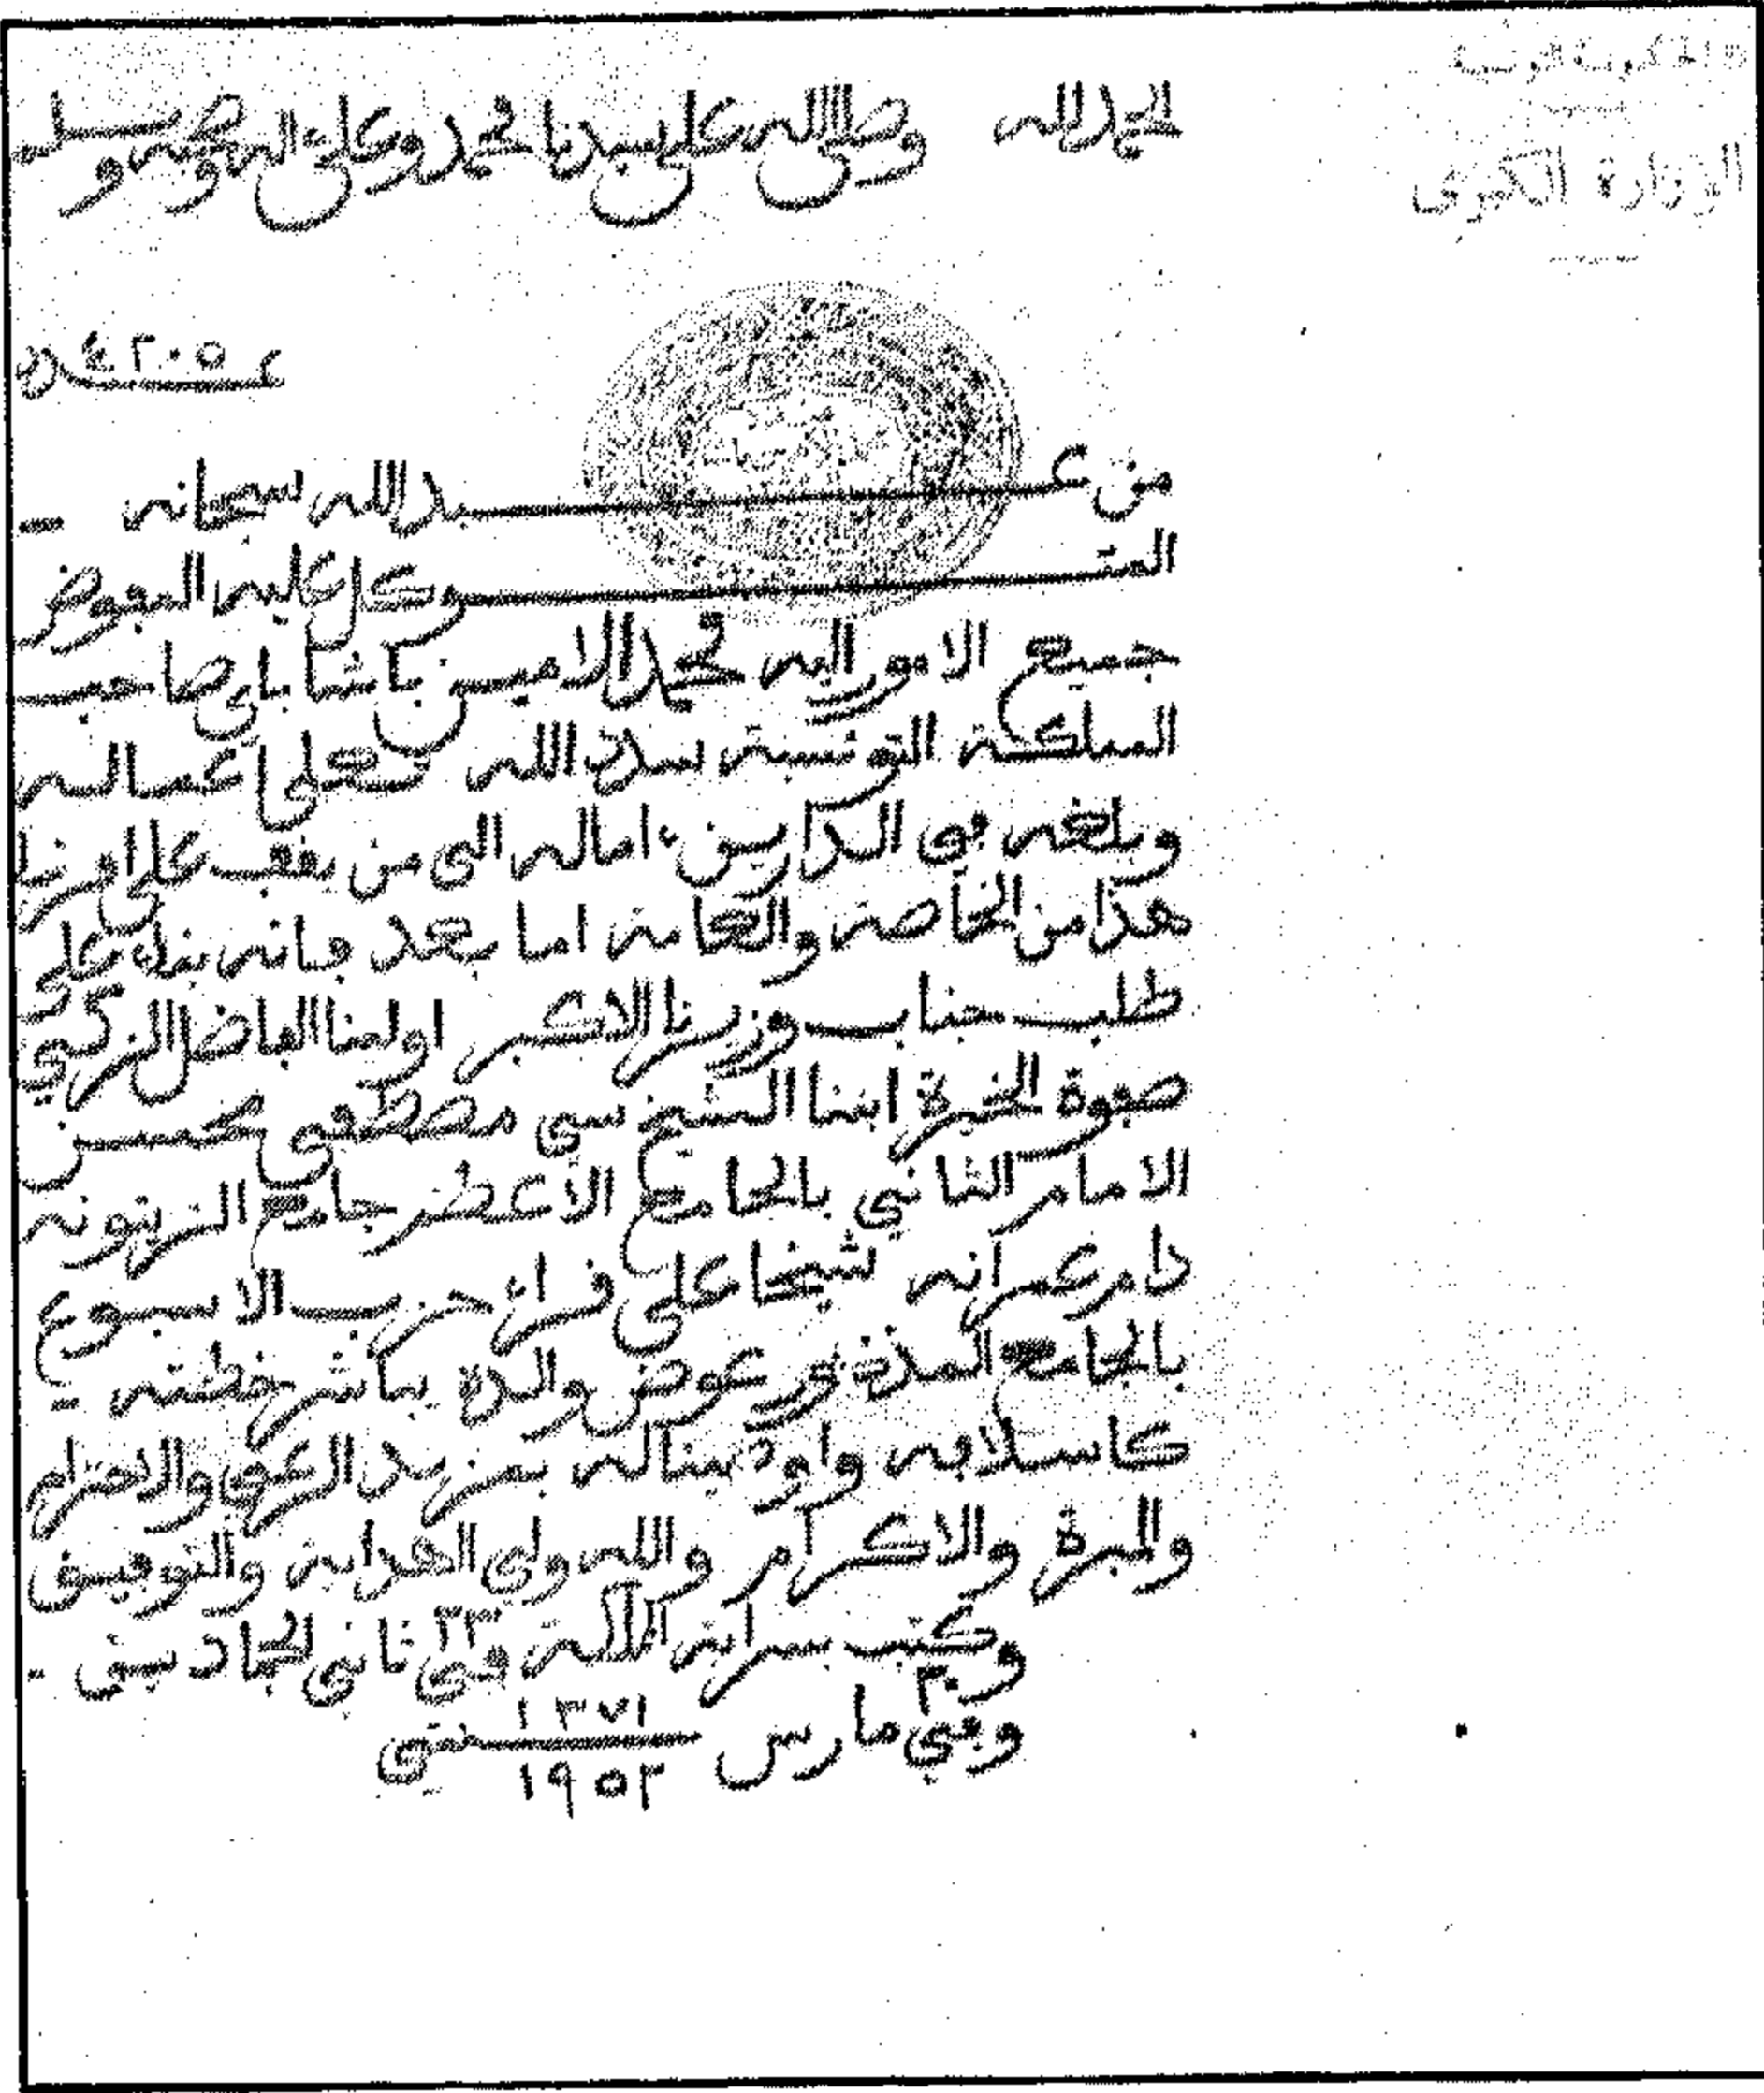 الحكومة التونسية
الوزارة الكبرى
الحمد لله وصلى الله على سيدنا محمد وعلى اله وصحبه وسلم
عـ٤٢٠٥ـدد
من عبد الله سبحانه
المتوكل عليه المفوض
جميع الامور اليه محمد الامين باشا باي صاحب
المملكة التونسية سدد الله تعلى اعماله
وبلغه في الدارين ءاماله الى من يقف على امرنا
هذا من الخاصة والعامة اما بعد فانه بناء على
طلب جناب وزيرنا الاكبر اولينا الفاضل الزكي
صفوة الخيرة ابننا الشيخ سي مصطفى محسن
الامام الثاني بالجامع الاعظم جامع الزيتونة
دام عمرانه شيخا على قراء حزب الاسبوع
بالجامع المذكور عوض والده يباشر خطته
كاسلافه واوصينا له بمزيد الرعي والاحترام
والمبرة والاكرام والله ولي الهداية والتوفيق
وكتب بسراية المملكة في ٢٣ ثاني الجمادين
وفي ٢٠ مارس ١٣٧١ سنتي
١٩٥٢